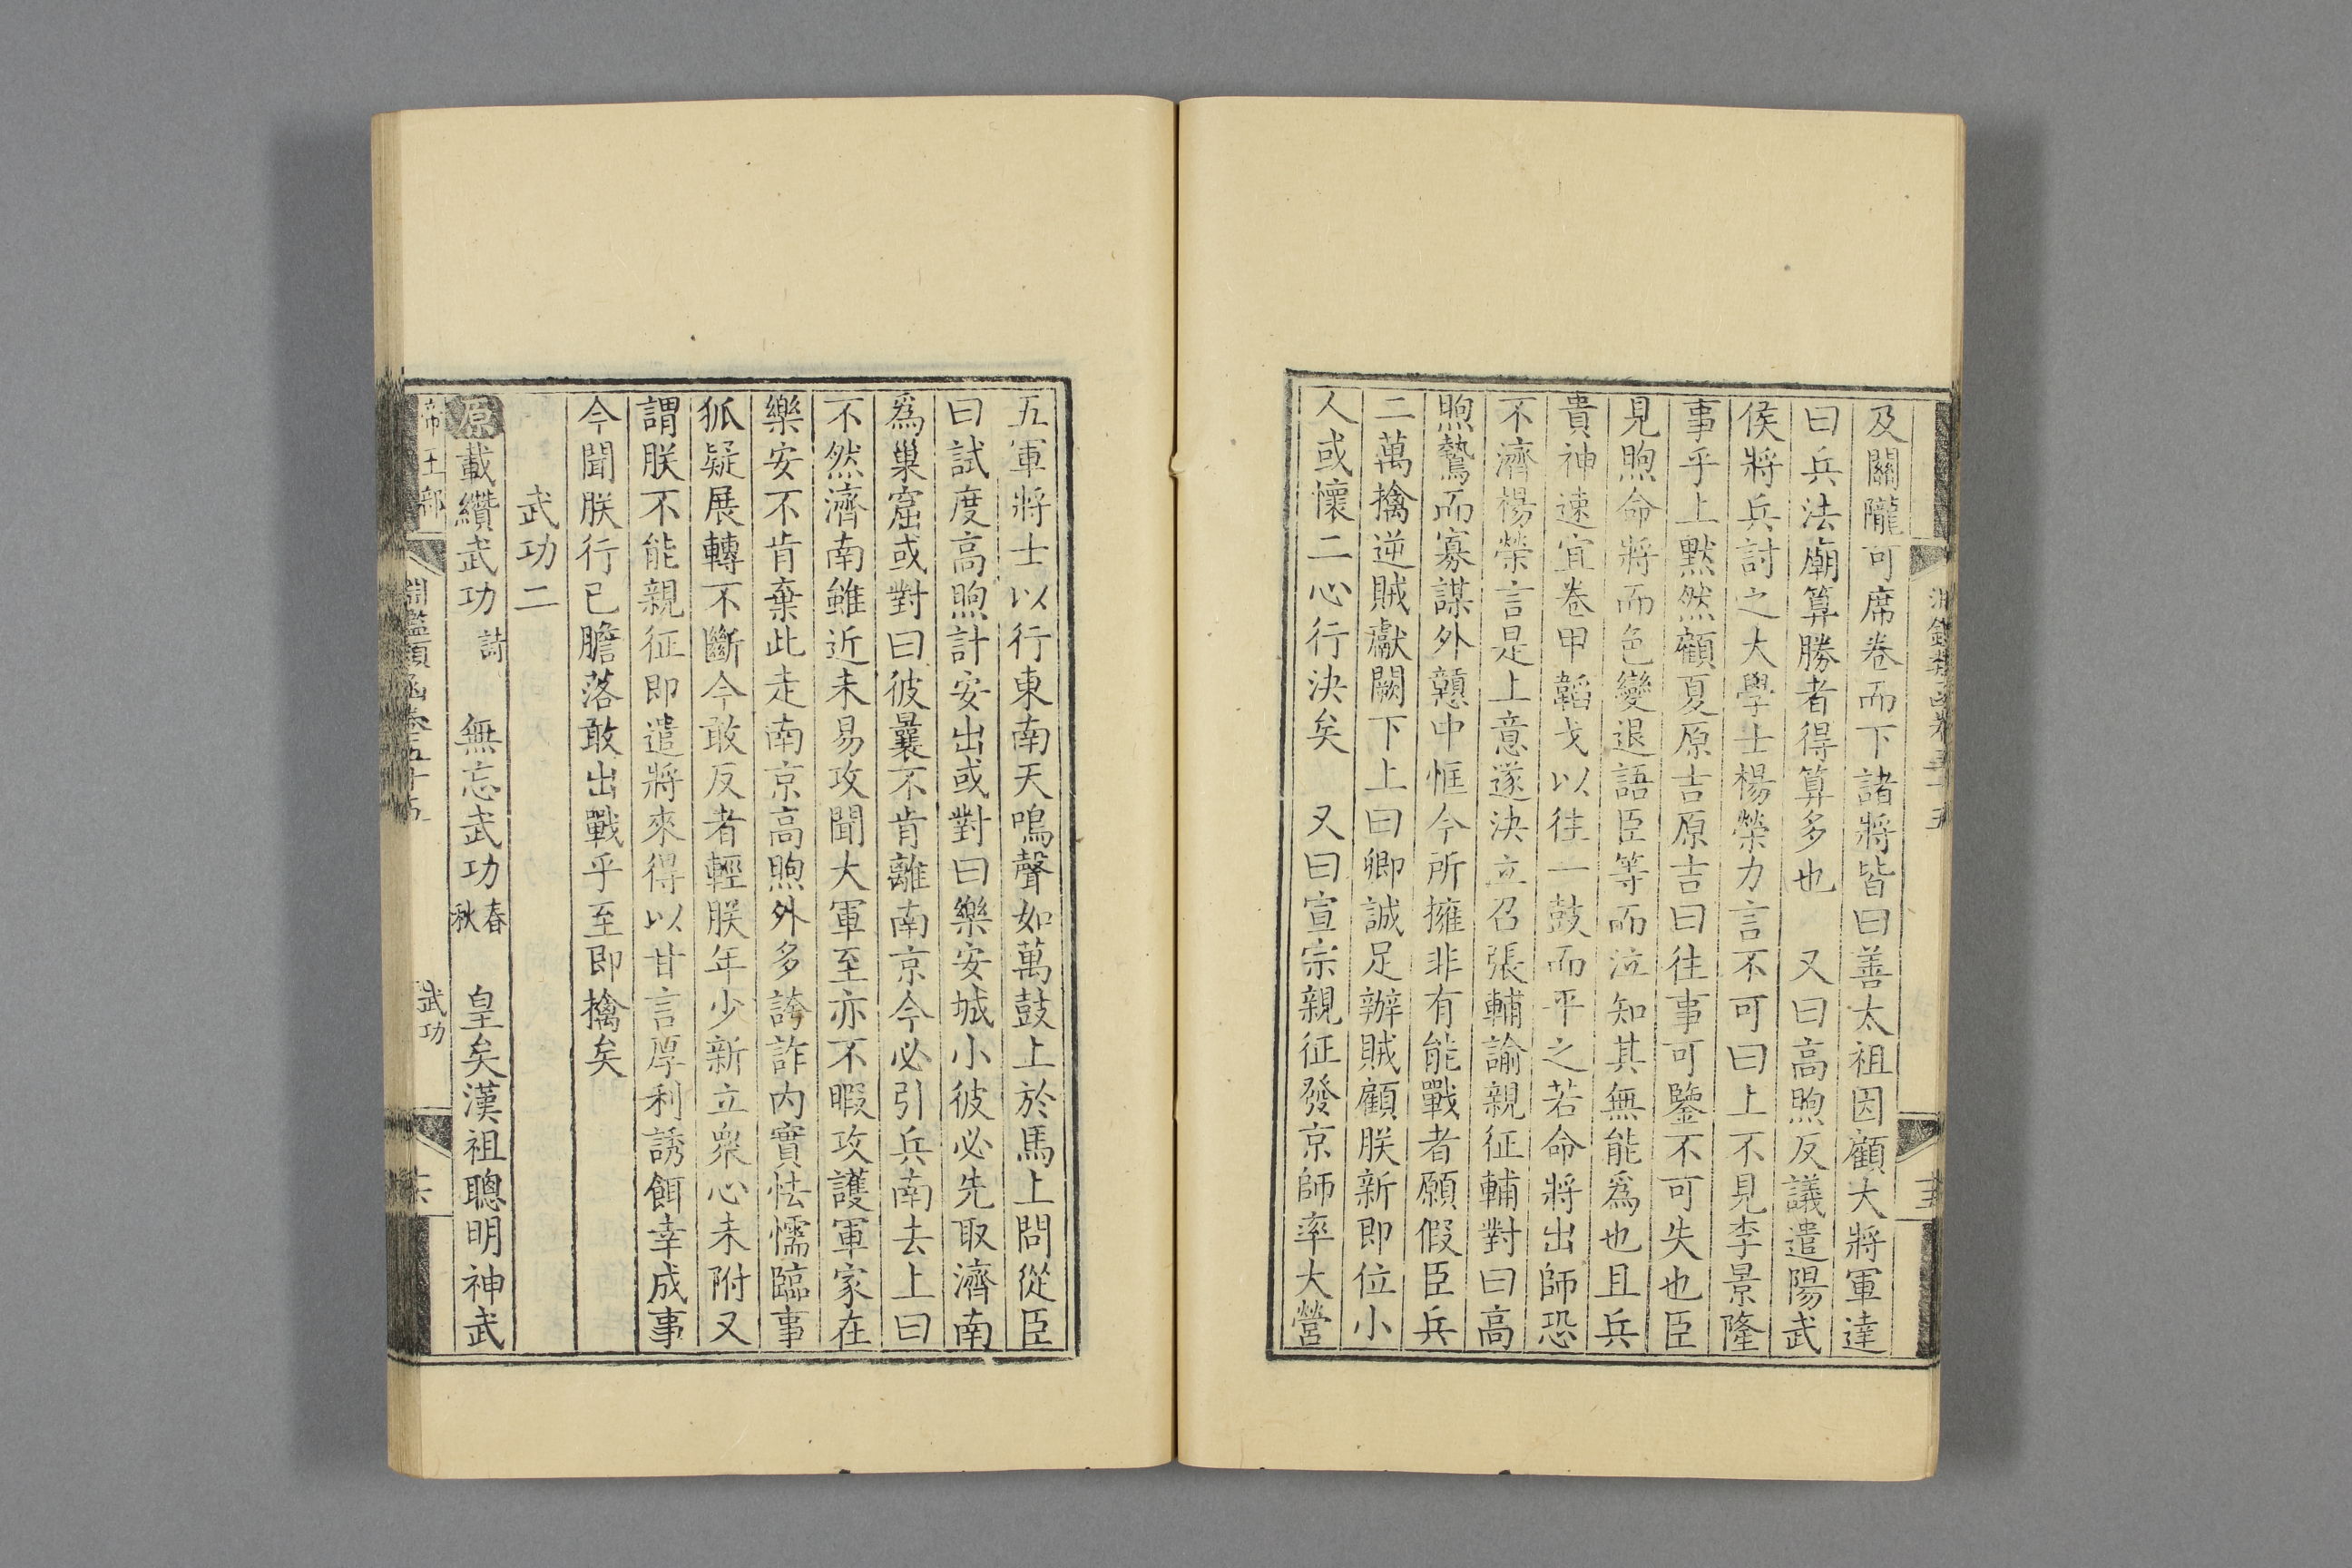 及關隴可席卷而下諸將皆曰善太祖因顧大將軍達
曰兵法廟算勝者得算多也　又曰高煦反議遣陽武
侯將兵討之大學士楊榮力言不可曰上不見李景隆
事乎上默然顧夏原吉原吉曰往事可鑒不可失也臣
見煦命將而色變退語臣等而泣知其無能爲也且兵
貴神速宜卷甲韜戈以往一鼓而平之若命將出師恐
不濟楊榮言是上意遂決立召張輔諭親征輔對曰高
煦鷙而寡謀外戇中恇今所擁非有能戰者願假臣兵
二萬擒逆賊獻闕下上曰卿誠足辦賊顧朕新即位小
人或懷二心行決矣　又曰宣宗親征發京師率大營
五軍將士以行東南天鳴聲如萬鼓上於馬上問從臣
曰試度高煦計安出或對曰樂安城小彼必先取濟南
爲巢窟或對曰彼曩不肯離南京今必引兵南去上曰
不然濟南雖近未易攻聞大軍至亦不暇攻護軍家在
樂安不肯棄此走南京高煦外多誇詐內實怯懦臨事
狐疑展轉不斷今敢反者輕朕年少新立衆心未附又
謂朕不能親征即遣將來得以甘言厚利誘餌幸成事
今聞朕行已膽落敢出戰乎至即擒矣
武功二
原載纘武功詩　無忘武功春秋　皇矣漢祖聰明神武
帝王部　淵鑑類函卷五十五　武功　十六